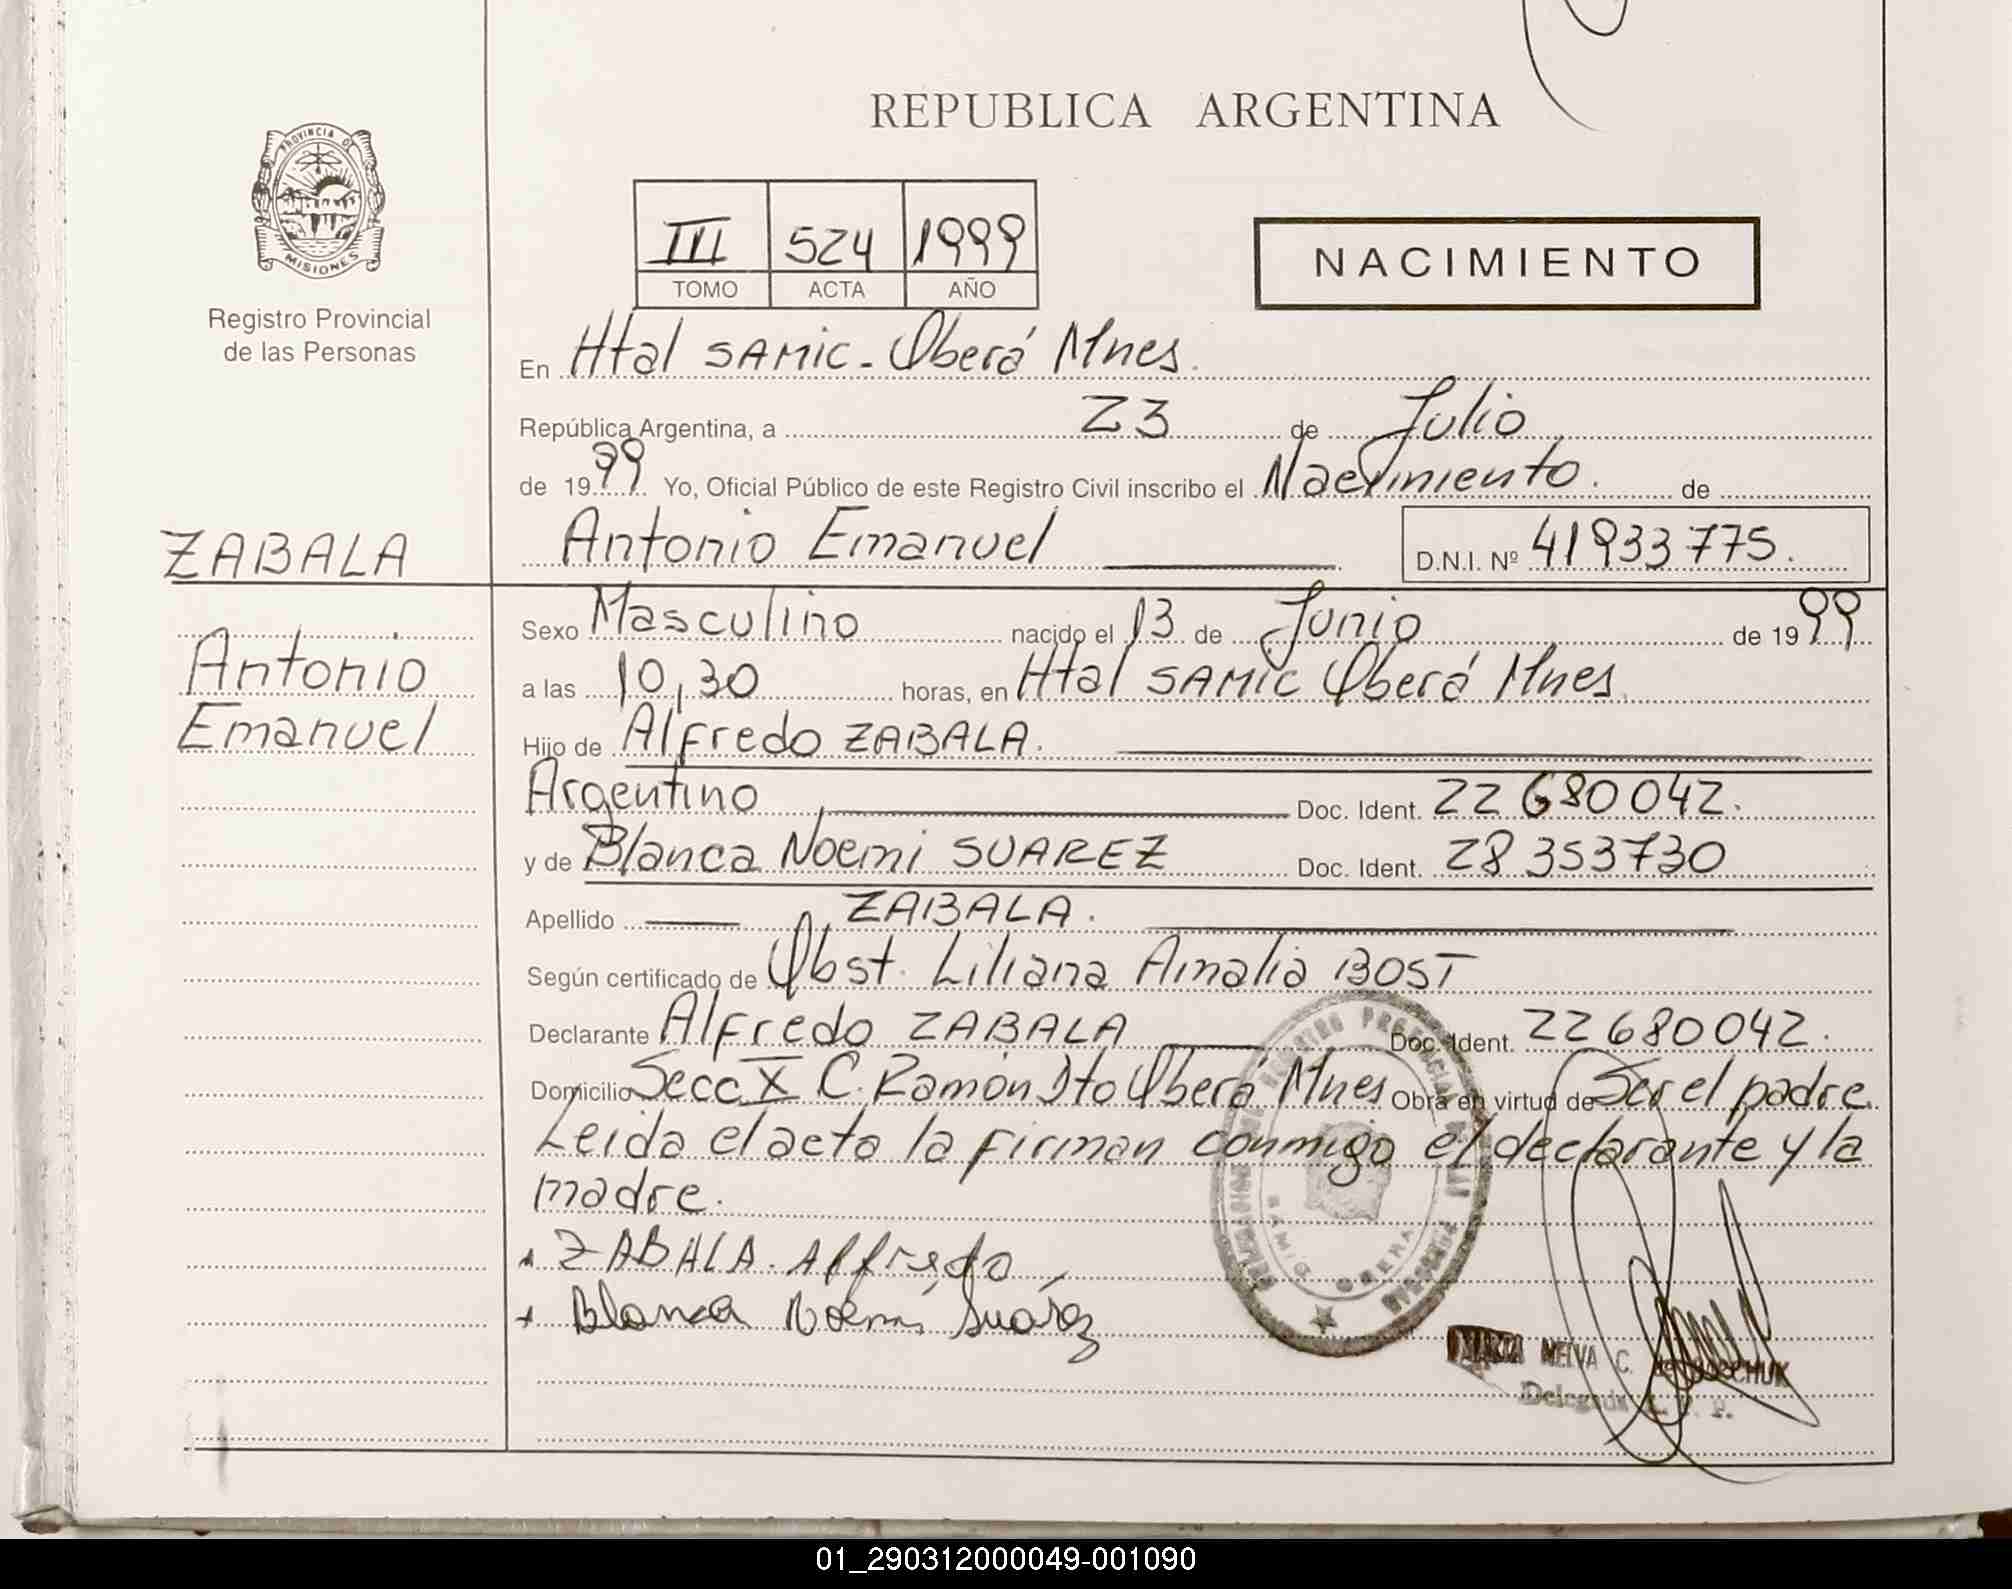 REPUBLICA ARGENTINA
PROVINCIA DE
MISIONES
Registro Provincial
de las Personas
III 524 1999
TOMO ACTA AÑO
NACIMIENTO
En Htal SAMIC - Oberá Mnes.
República Argentina, a 23 de Julio
de 1999 Yo, Oficial Público de este Registro Civil inscribo el Nacimiento. de
ZABALA
Antonio Emanuel D.N.I. Nº 41933775.
Antonio
Emanuel
Sexo Masculino nacido el 13 de Junio de 1999
a las 10,30 horas, en Htal SAMIC Oberá Mnes.
Hijo de Alfredo ZABALA.
Argentino Doc. Ident. 22 680 042.
y de Blanca Noemi SUAREZ Doc. Ident. 28 353730
Apellido ZABALA.
Según certificado de Obst. Liliana Amalia BOST
Declarante Alfredo ZABALA Doc. Ident. 22680042.
Domicilio Secc X C. Ramón Dto Oberá Mnes Obra en virtud de Ser el padre.
Leida el acta la firman conmigo el declarante y la
madre.
ZABALA. Alfredo
Blanca Noemi Suárez
SAMIC OBERA
NELVA C.
Delegada
01_290312000049-001090